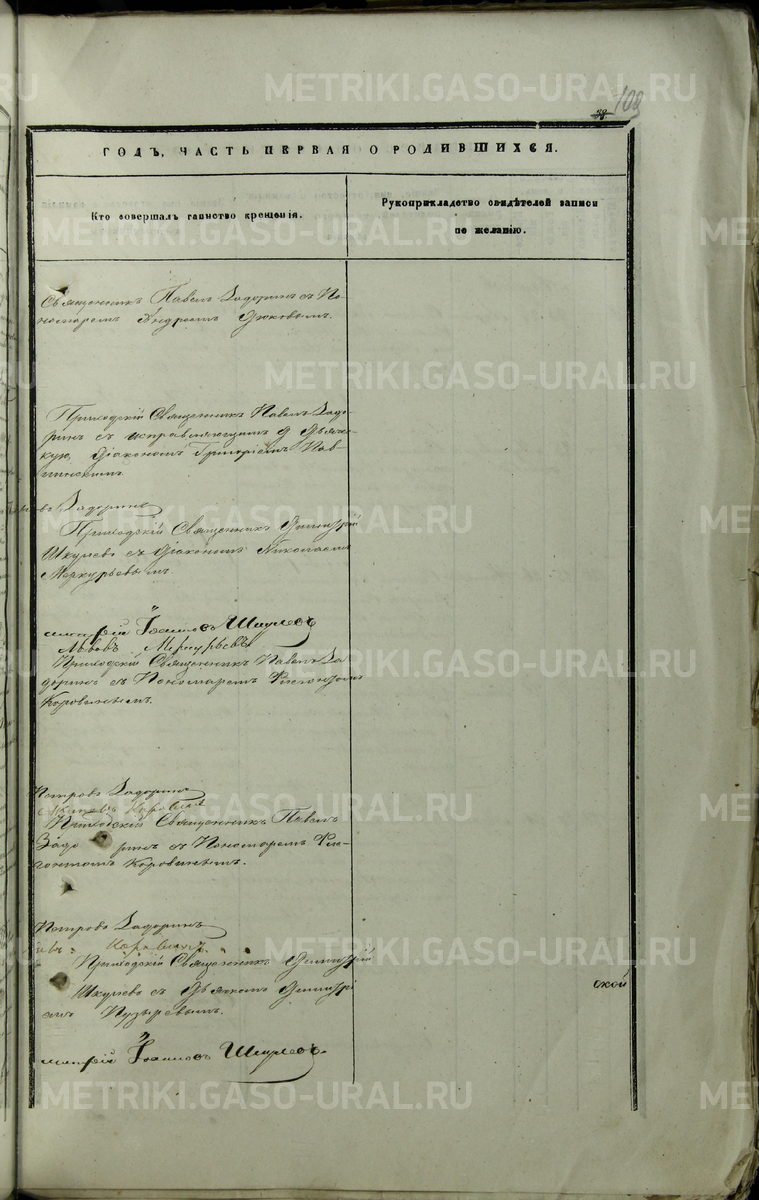 METRIKI.GASO-URAL.RU
38 108
ГОДЪ, ЧАСТЬ ПЕРВАЯ О РОДИВШИХСЯ.
Кто совершалъ таинство крещенія.
Рукоприкладство свидѣтелей записи
по желанію.
Священникъ Павелъ Задоринъ съ По
номаремъ Андреемъ
Приходскій Священникъ Павелъ Задо-
ринъ съ исправляющимъ
Діакономъ Григоріемъ
въ Задоринъ
Приходскій Священникъ Димитрій
Шкулевъ съ Діакономъ Николаемъ
Меркурьевымъ.
митрій Іоанновъ Шкулевъ
Львовъ Меркурьевъ
Приходскій Священникъ Павелъ За
доринъ съ Пономаремъ
Коровинымъ.
Петровъ Задоринъ
Коровинъ
Приходскій Священникъ Павелъ
Задоринъ съ Пономаремъ
Коровинымъ.
Петровъ Задоринъ
Коровинъ
Приходскій Священникъ Димитрій
Шкулевъ съ Дьячкомъ Димитрі
емъ Пузыревымъ.
ской
митрій Іоанновъ Шкулевъ.